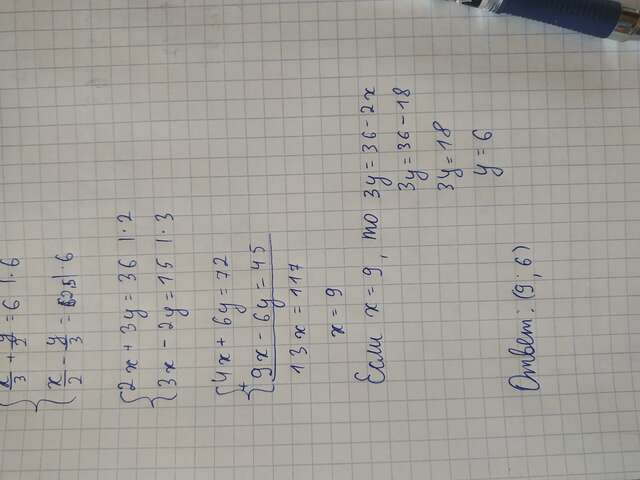 x/3 + y/2 = 6 |·6
x/2 - y/3 = 2,5 |·6
2x + 3y = 36 |·2
3x - 2y = 15 |·3
4x + 6y = 72
+ 9x - 6y = 45
13x = 117
x = 9
Если x = 9, то 3y = 36 - 2x
3y = 36 - 18
3y = 18
y = 6
Ответ: (9; 6)